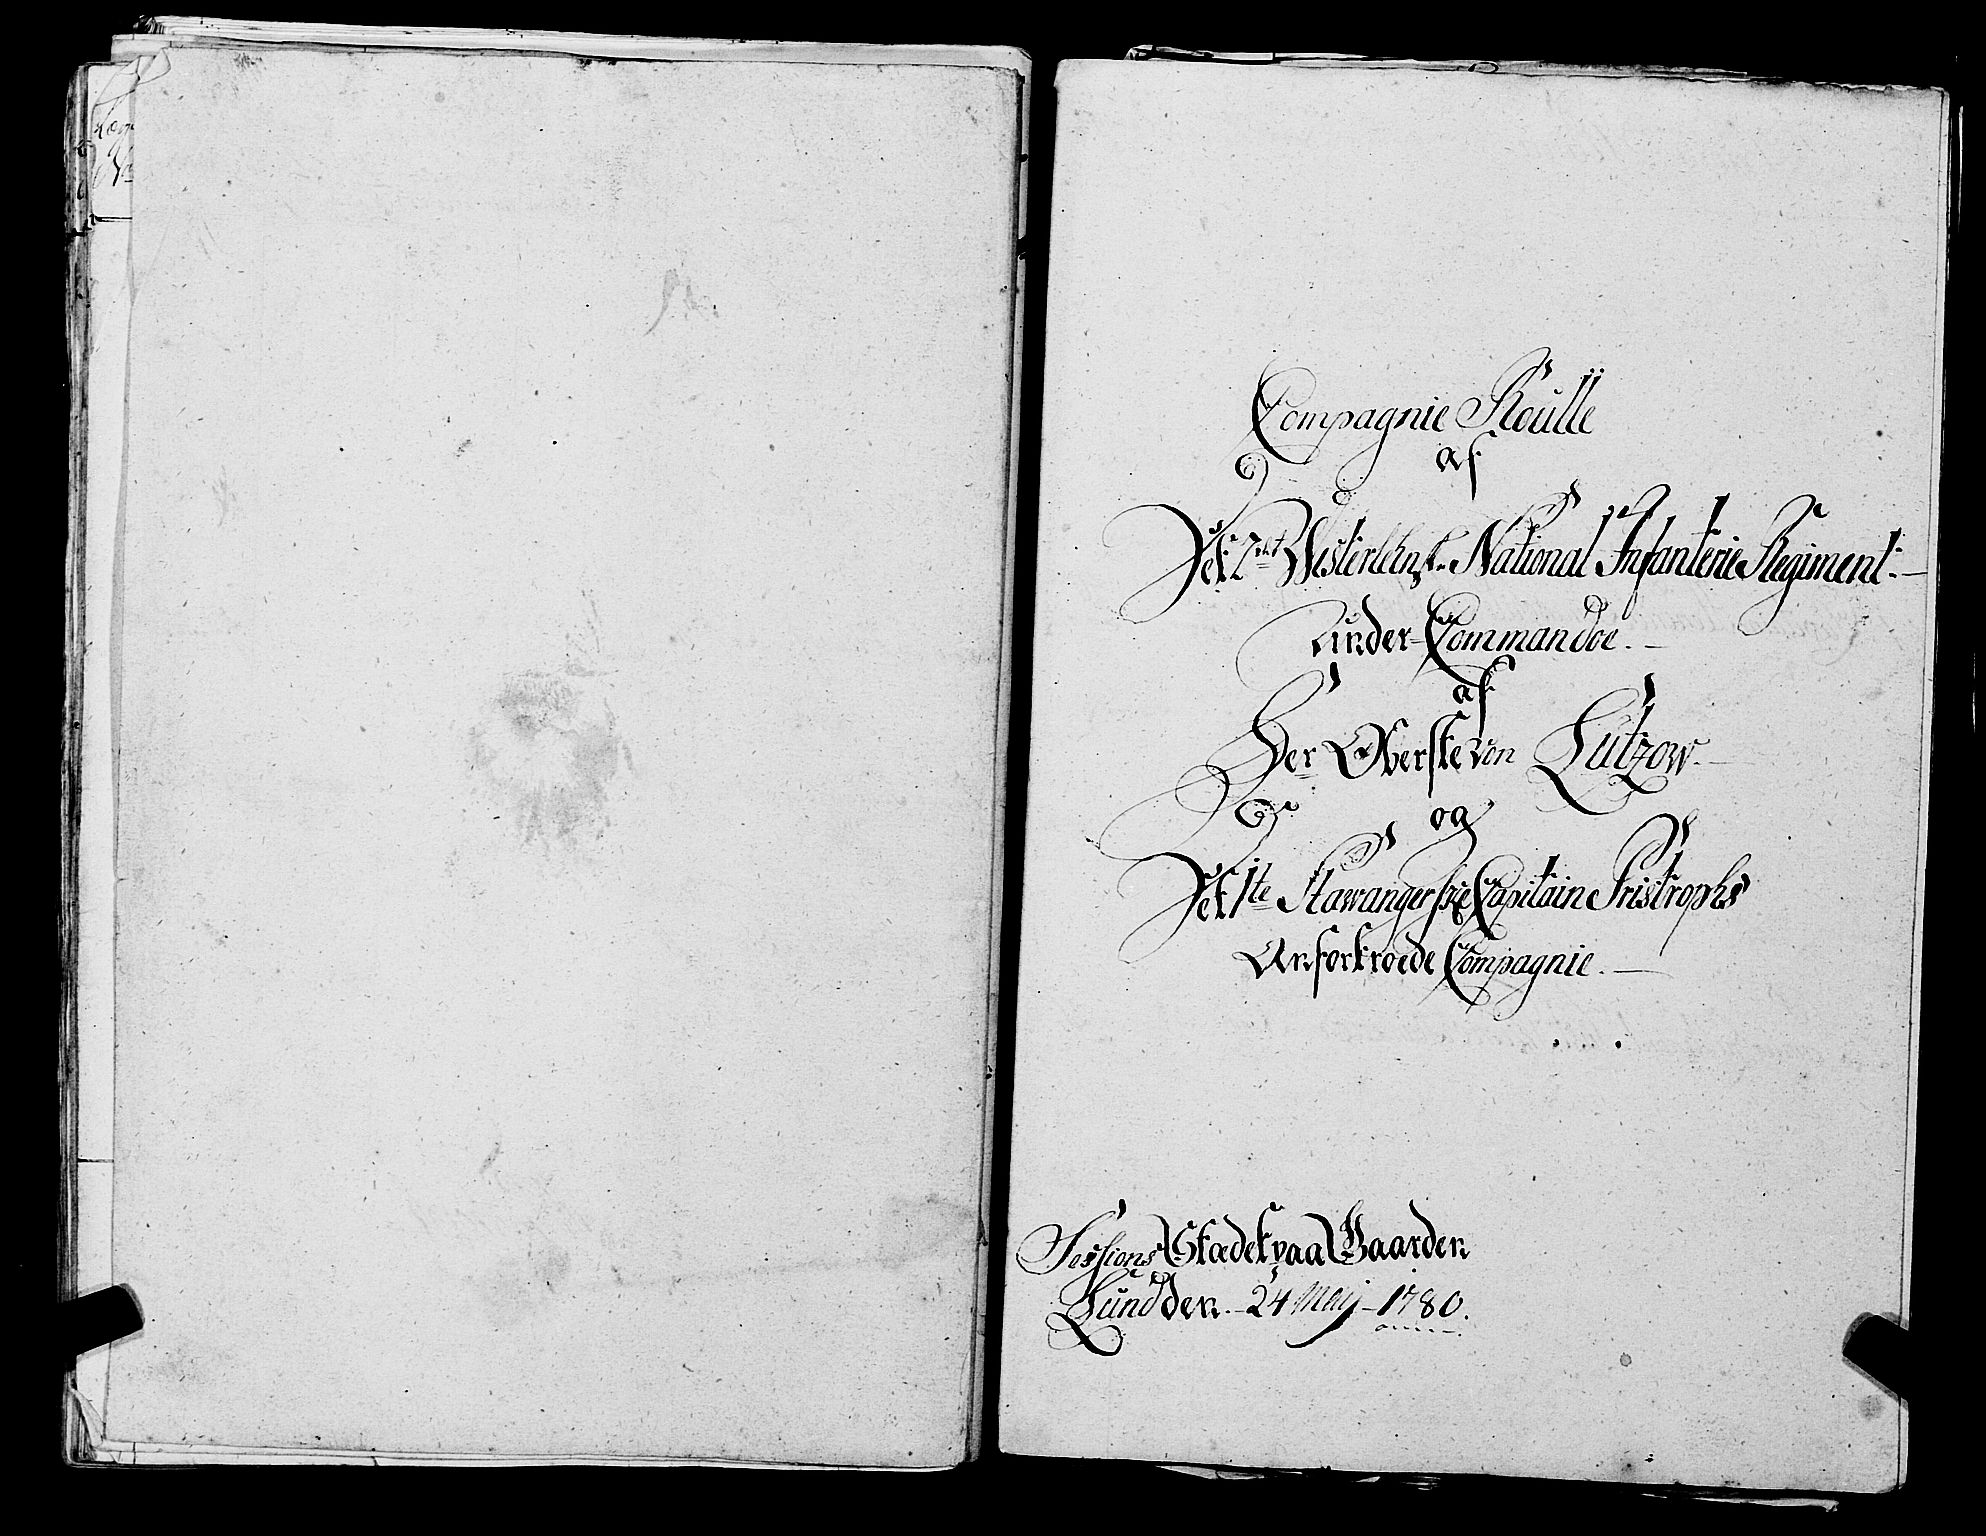 Compagnie Roulle
af
Det 2det Westerlehnske National Infanterie Regiment.
under Commandoe.
af
Her Oberste von Lützow.
og
Det 1te Stawangerske Capitain Tristrophs
Anfortroede Compagnie.
Sessions Stædet paa Gaarden
Lund den. 24 Maij 1780.